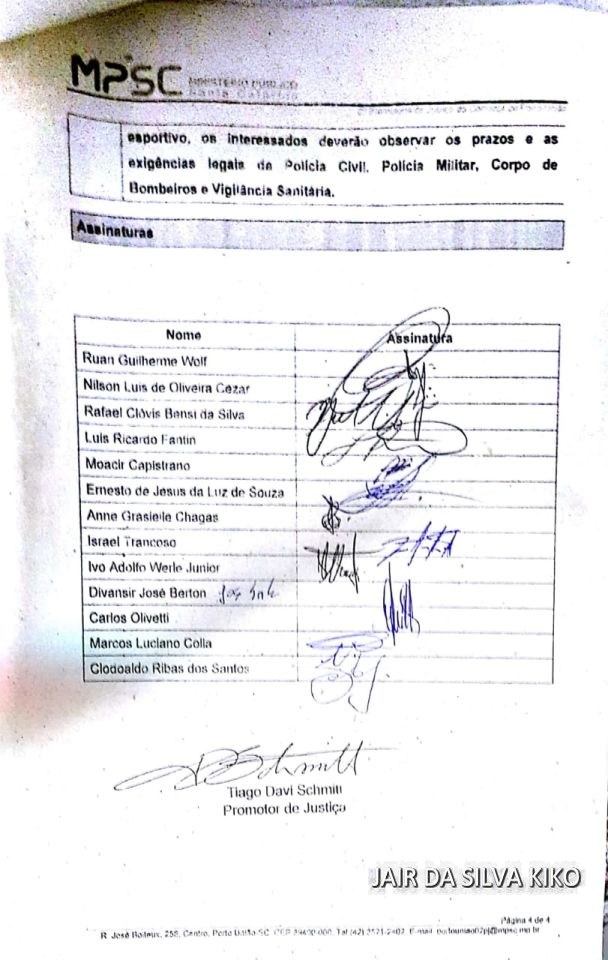 MPSC MINISTÉRIO PÚBLICO
Santa Catarina
esportivo, os interessados deverão observar os prazos e as
exigências legais da Polícia Civil, Polícia Militar, Corpo de
Bombeiros e Vigilância Sanitária.
Assinaturas
Nome Assinatura
Ruan Guilherme Wolf
Nilson Luis de Oliveira Cezar
Rafael Clóvis Bensi da Silva
Luis Ricardo Fantin
Moacir Capistrano
Ernesto de Jesus da Luz de Souza
Anne Grasielle Chagas
Israel Trancoso
Ivo Adolfo Werle Junior
Divansir José Berton
Carlos Olivetti
Marcos Luciano Colla
Clodoaldo Ribas dos Santos
Schmitt
Tiago Davi Schmitt
Promotor de Justiça
JAIR DA SILVA KIKO
Página 4 de 4
R. José Boiteux, 258, Centro, Porto União-SC, CEP